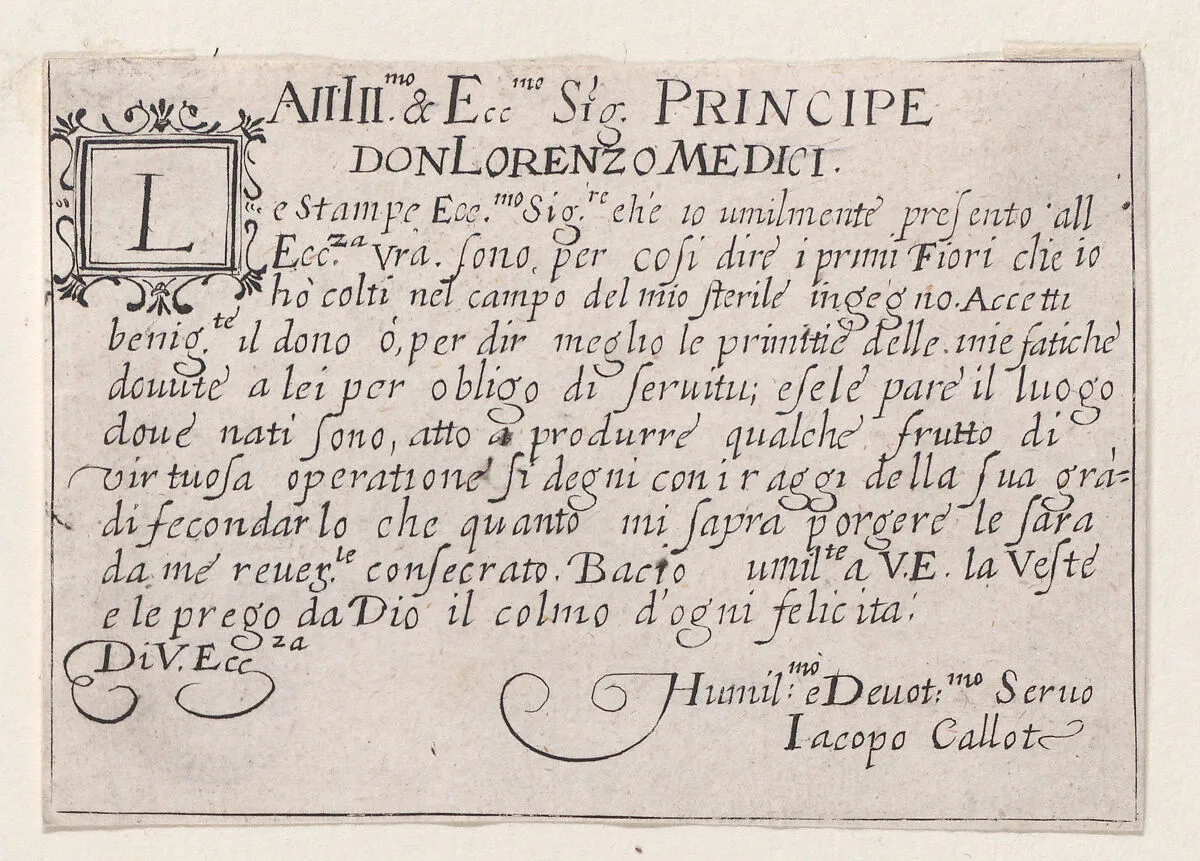 All Ill.mo & Eccmo Sig. PRINCIPE
DON LORENZO MEDICI.
Le Stampe Ecc.mo Sig.re che io umilmente presento all
Ecc.za Vrà. sono, per cosi dire i primi Fiori che io
hò colti nel campo del mio sterile ingegno. Accetti
benig.te il dono ò, per dir meglio le primitie delle mie fatiche
douute a lei per obligo di seruitu; e se le pare il luogo
doue nati sono, atto a produrre qualche frutto di
virtuosa operatione si degni con i raggi della sua grà=
di fecondarlo che quanto mi saprà porgere le sara
da me reuer.le consecrato. Bacio umilte a V.E. la Veste
e le prego da Dio il colmo d'ogni felicita;
Di V. Eccza
Humil:mo e Deuot:mo Seruo
Iacopo Callot